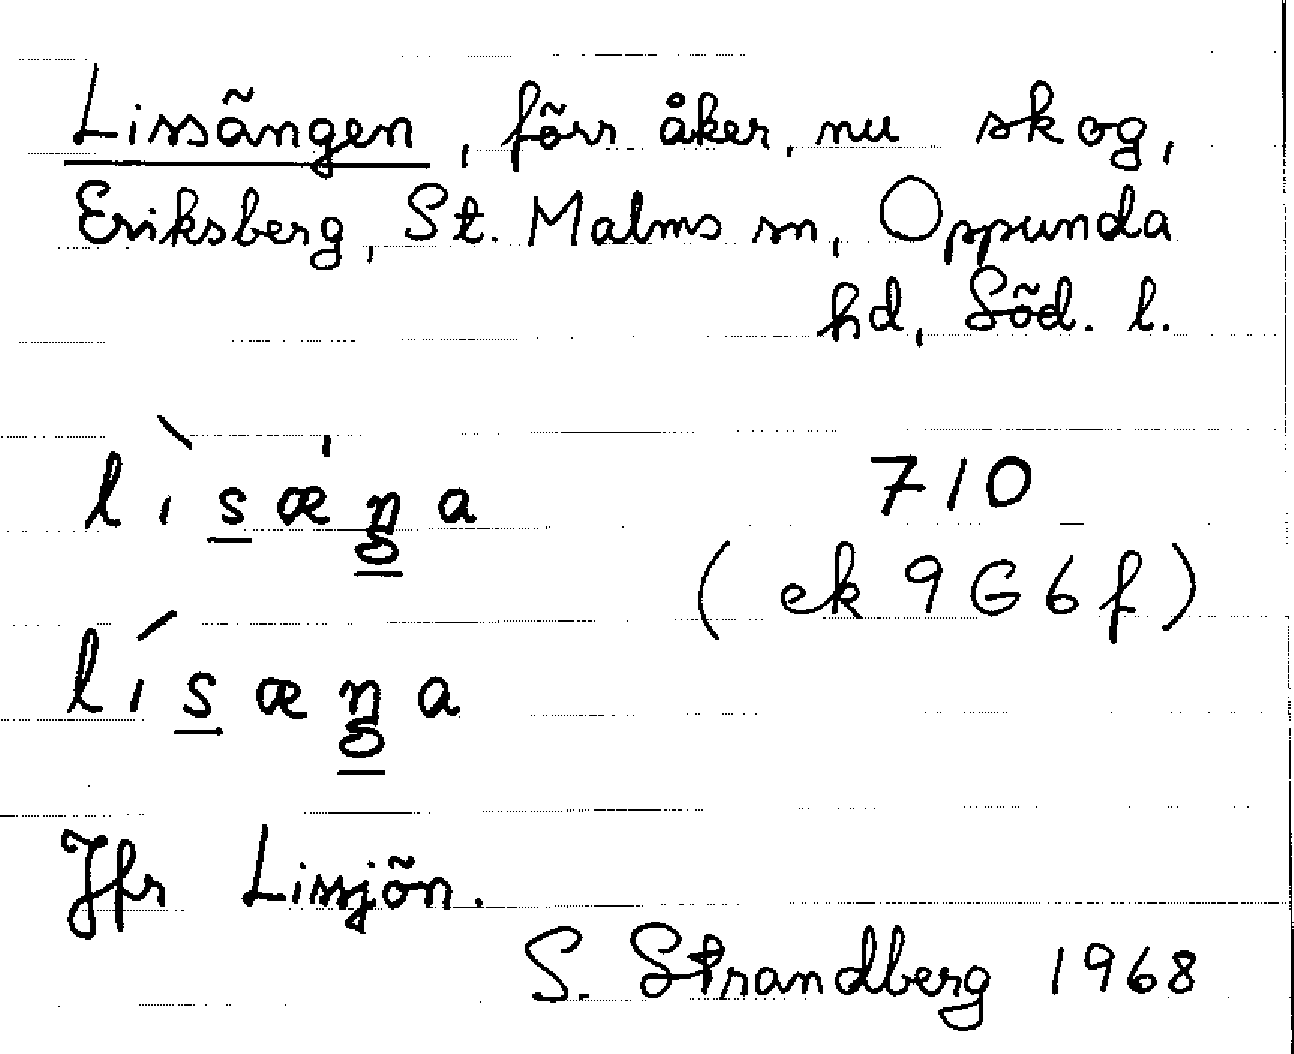 Lissängen, förr åker, nu skog,
Eriksberg, St. Malms sn, Oppunda
hd, Söd. l.
lìsæ̍ŋa 710
(ek 9G6f)
lísæŋa
Jfr Lissjön.
S. Strandberg 1968